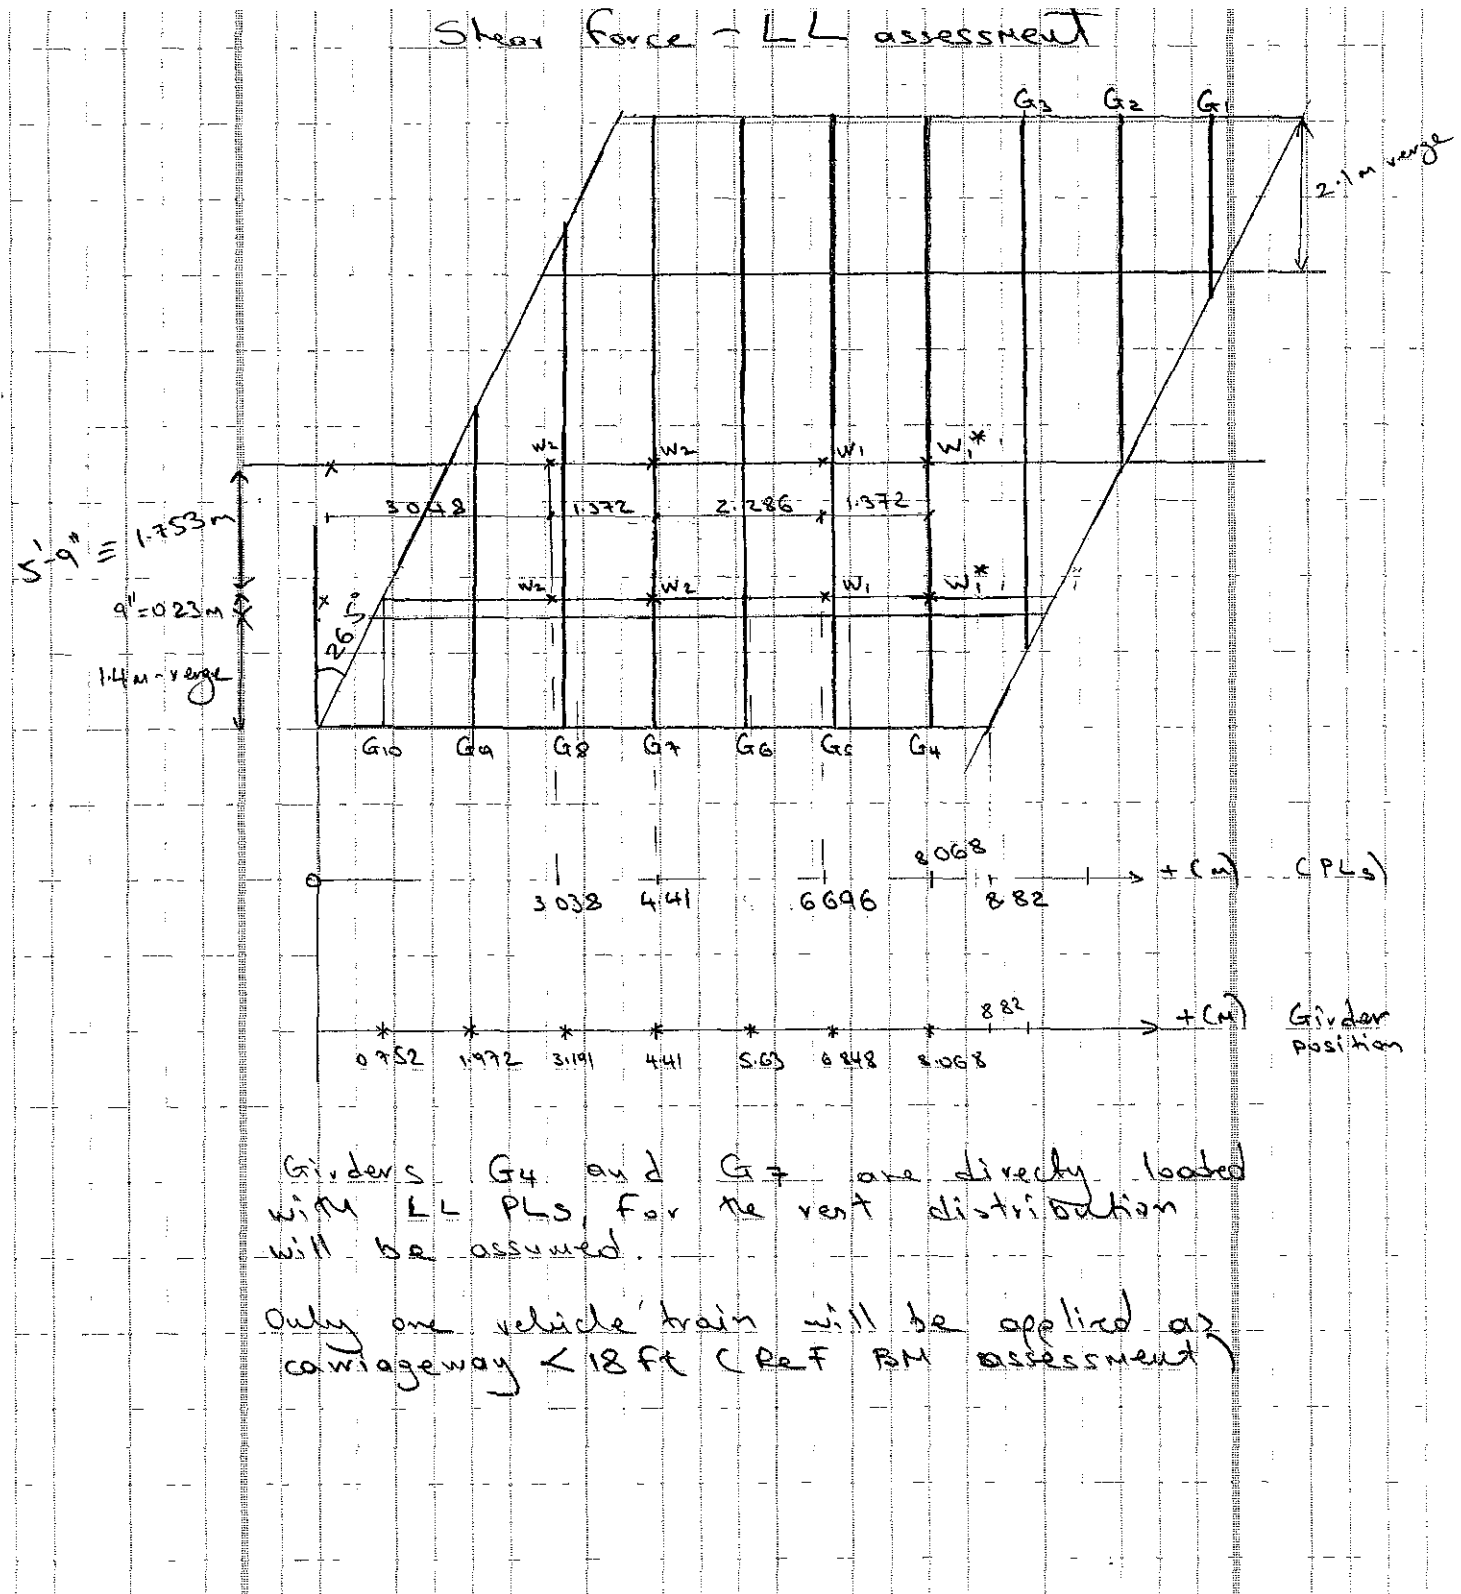 Shear Force - LL assessment
G3 G2 G1
2.1m verge
W2 W2 W1 W1*
3 048 1.372 2.286 1.372
5'-9" ≡ 1.753m
W2 W2 W1 W1*
9"=0 23m
26°
1.4m-verge
G10 G9 G8 G7 G6 G5 G4
8 068
0 + (m) (PLs)
3 038 4.41 6 696 8 82
8 82
+(M) Girder
position
0 752 1.972 3.191 4.41 5.63 6 848 8.068
Girders G4 and G7 are directly loaded
with LL PLs, For the rest distribution
will be assumed.
Only one vehicle train will be applied as
carriageway < 18 ft (Ref BM assessment)